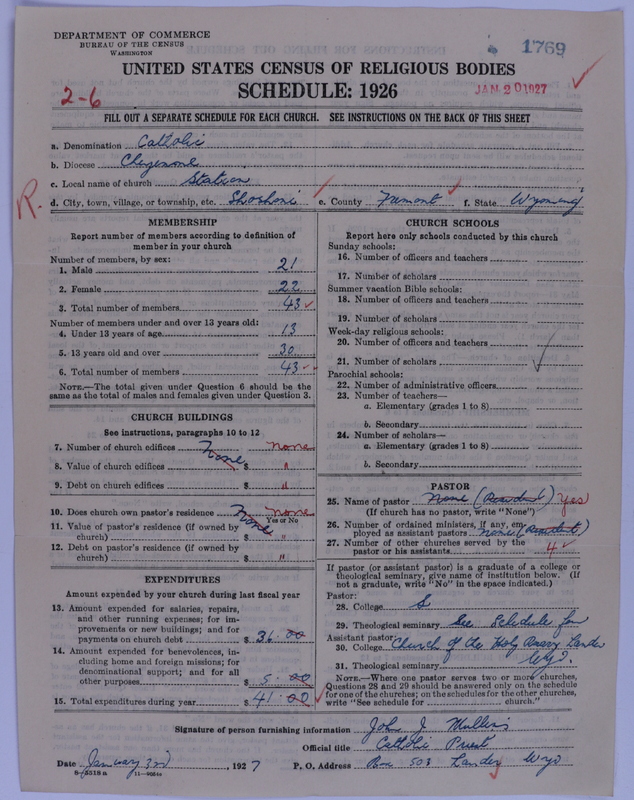 DEPARTMENT OF COMMERCE
BUREAU OF THE CENSUS
WASHINGTON
1769
UNITED STATES CENSUS OF RELIGIOUS BODIES
SCHEDULE: 1926
2-6
JAN 20 1927
FILL OUT A SEPARATE SCHEDULE FOR EACH CHURCH. SEE INSTRUCTIONS ON THE BACK OF THIS SHEET
a. Denomination Catholic
b. Diocese Cheyenne
c. Local name of church Station
R.
d. City, town, village, or township, etc. Shoshoni e. County Fremont f. State Wyoming
MEMBERSHIP
Report number of members according to definition of member in your church
Number of members, by sex:
1. Male 21
2. Female 22
3. Total number of members 43
Number of members under and over 13 years old:
4. Under 13 years of age 13
5. 13 years old and over 30
6. Total number of members 43
NOTE.—The total given under Question 6 should be the same as the total of males and females given under Question 3.
CHURCH BUILDINGS
See instructions, paragraphs 10 to 12
7. Number of church edifices None none
8. Value of church edifices $ "
9. Debt on church edifices $ "
10. Does church own pastor's residence None none
Yes or No
11. Value of pastor's residence (if owned by church) $ "
12. Debt on pastor's residence (if owned by church) $ "
EXPENDITURES
Amount expended by your church during last fiscal year
13. Amount expended for salaries, repairs, and other running expenses; for improvements or new buildings; and for payments on church debt $ 36.00
14. Amount expended for benevolences, including home and foreign missions; for denominational support; and for all other purposes $ 5.00
15. Total expenditures during year $ 41.00
CHURCH SCHOOLS
Report here only schools conducted by this church
Sunday schools:
16. Number of officers and teachers
17. Number of scholars
Summer vacation Bible schools:
18. Number of officers and teachers
19. Number of scholars
Week-day religious schools:
20. Number of officers and teachers
21. Number of scholars
Parochial schools:
22. Number of administrative officers
23. Number of teachers—
a. Elementary (grades 1 to 8)
b. Secondary
24. Number of scholars—
a. Elementary (grades 1 to 8)
b. Secondary
PASTOR
25. Name of pastor None (Resident) Yes
(If church has no pastor, write "None")
26. Number of ordained ministers, if any, employed as assistant pastors None (Resident)
27. Number of other churches served by the pastor or his assistants 4
If pastor (or assistant pastor) is a graduate of a college or theological seminary, give name of institution below. (If not a graduate, write "No" in the space indicated.)
Pastor:
28. College S
29. Theological seminary See Schedule for
Assistant pastor:
30. College Church of the Holy Rosary Lander
31. Theological seminary Wyo.
NOTE.—Where one pastor serves two or more churches, Questions 28 and 29 should be answered only on the schedule for one of the churches; on the schedules for the other churches, write "See schedule for church."
Signature of person furnishing information John J Mullins
Official title Catholic Priest
Date January 3rd, 1927 P. O. Address Box 503 Lander Wyo
8-5518 a 11-9054a